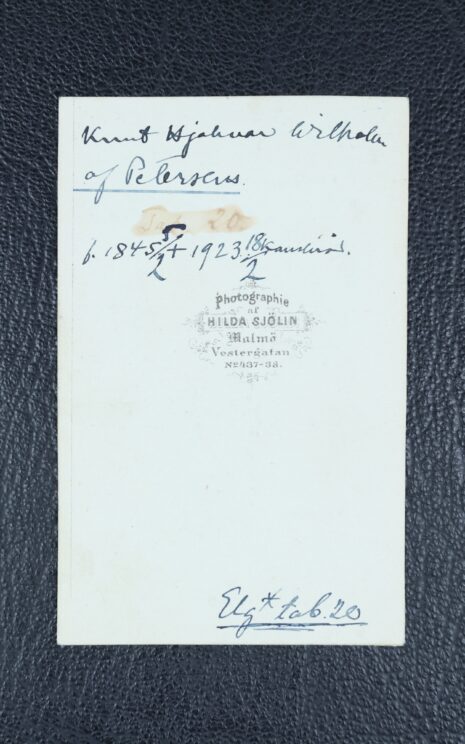 Knut Hjalmar Wilhelm
af Petersens.
Tab. 20
f. 1845 5/2 + 1923 18/2
Photographie
af
HILDA SJÖLIN
Malmö
Vestergatan
No 437-38.
Elg* tab. 20